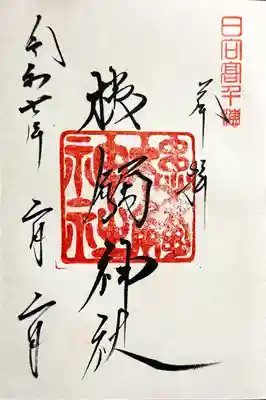 日向高千穂
奉拝
槵觸神社
令和七年 二月 二日